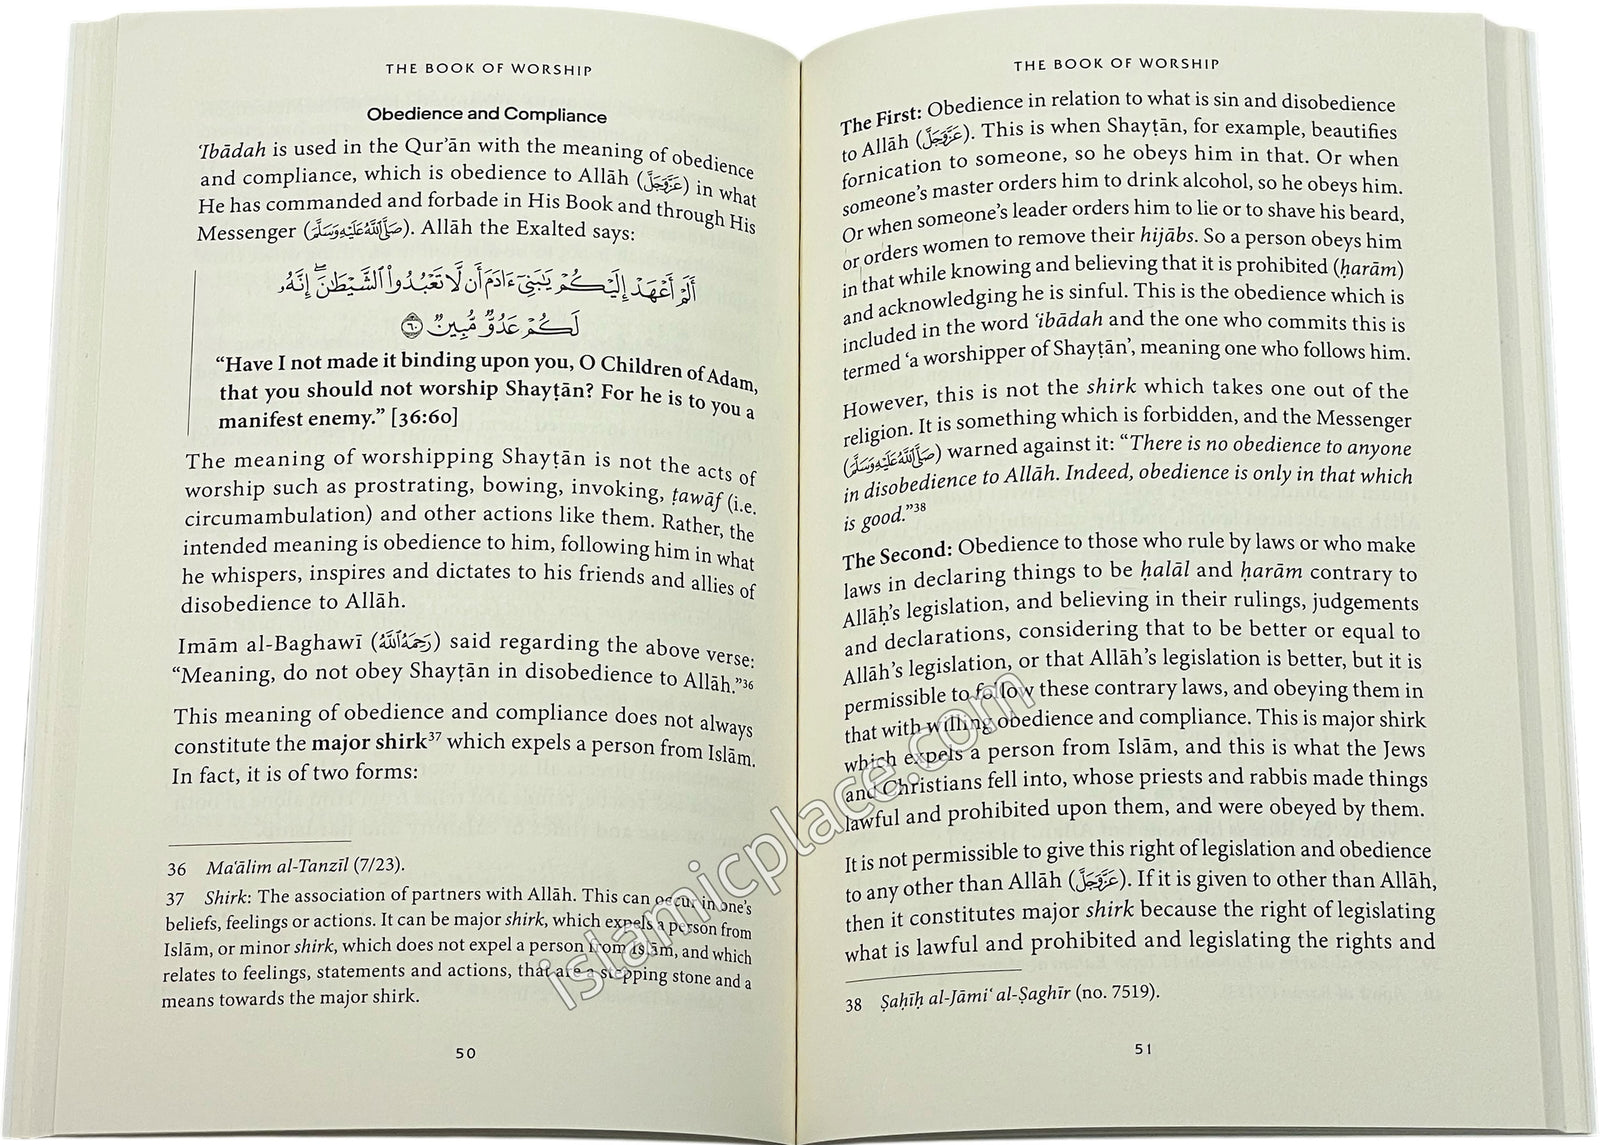 THE BOOK OF WORSHIP
Obedience and Compliance
‘Ibādah is used in the Qur’ān with the meaning of obedience
and compliance, which is obedience to Allāh (عَزَّوَجَلَّ) in what
He has commanded and forbade in His Book and through His
Messenger (صَلَّى اللَّهُ عَلَيْهِ وَسَلَّمَ). Allāh the Exalted says:
أَلَمْ أَعْهَدْ إِلَيْكُمْ يَٰبَنِىٓ ءَادَمَ أَن لَّا تَعْبُدُوا۟ ٱلشَّيْطَٰنَ ۖ إِنَّهُۥ
لَكُمْ عَدُوٌّ مُّبِينٌ ٦٠
“Have I not made it binding upon you, O Children of Adam,
that you should not worship Shayṭān? For he is to you a
manifest enemy.” [36:60]
The meaning of worshipping Shayṭān is not the acts of
worship such as prostrating, bowing, invoking, ṭawāf (i.e.
circumambulation) and other actions like them. Rather, the
intended meaning is obedience to him, following him in what
he whispers, inspires and dictates to his friends and allies of
disobedience to Allāh.
Imām al-Baghawī (رَحِمَهُ اللَّهُ) said regarding the above verse:
“Meaning, do not obey Shayṭān in disobedience to Allāh.”36
This meaning of obedience and compliance does not always
constitute the major shirk37 which expels a person from Islām.
In fact, it is of two forms:
36 Ma‘ālim al-Tanzīl (7/23).
37 Shirk: The association of partners with Allāh. This can occur in one’s
beliefs, feelings or actions. It can be major shirk, which expels a person from
Islām, or minor shirk, which does not expel a person from Islām, and which
relates to feelings, statements and actions, that are a stepping stone and a
means towards the major shirk.
50
THE BOOK OF WORSHIP
The First: Obedience in relation to what is sin and disobedience
to Allāh (عَزَّوَجَلَّ). This is when Shayṭān, for example, beautifies
fornication to someone, so he obeys him in that. Or when
someone’s master orders him to drink alcohol, so he obeys him.
Or when someone’s leader orders him to lie or to shave his beard,
or orders women to remove their hijābs. So a person obeys him
in that while knowing and believing that it is prohibited (ḥarām)
and acknowledging he is sinful. This is the obedience which is
included in the word ‘ibādah and the one who commits this is
termed ‘a worshipper of Shayṭān’, meaning one who follows him.
However, this is not the shirk which takes one out of the
religion. It is something which is forbidden, and the Messenger
(صَلَّى اللَّهُ عَلَيْهِ وَسَلَّمَ) warned against it: “There is no obedience to anyone
in disobedience to Allāh. Indeed, obedience is only in that which
is good.”38
The Second: Obedience to those who rule by laws or who make
laws in declaring things to be ḥalāl and ḥarām contrary to
Allāḥ’s legislation, and believing in their rulings, judgements
and declarations, considering that to be better or equal to
Allāh’s legislation, or that Allāh’s legislation is better, but it is
permissible to follow these contrary laws, and obeying them in
that with willing obedience and compliance. This is major shirk
which expels a person from Islām, and this is what the Jews
and Christians fell into, whose priests and rabbis made things
lawful and prohibited upon them, and were obeyed by them.
It is not permissible to give this right of legislation and obedience
to any other than Allāh (عَزَّوَجَلَّ). If it is given to other than Allāh,
then it constitutes major shirk because the right of legislating
what is lawful and prohibited and legislating the rights and
38 Ṣaḥīḥ al-Jāmi‘ al-Ṣaghīr (no. 7519).
51
islamicplace.com